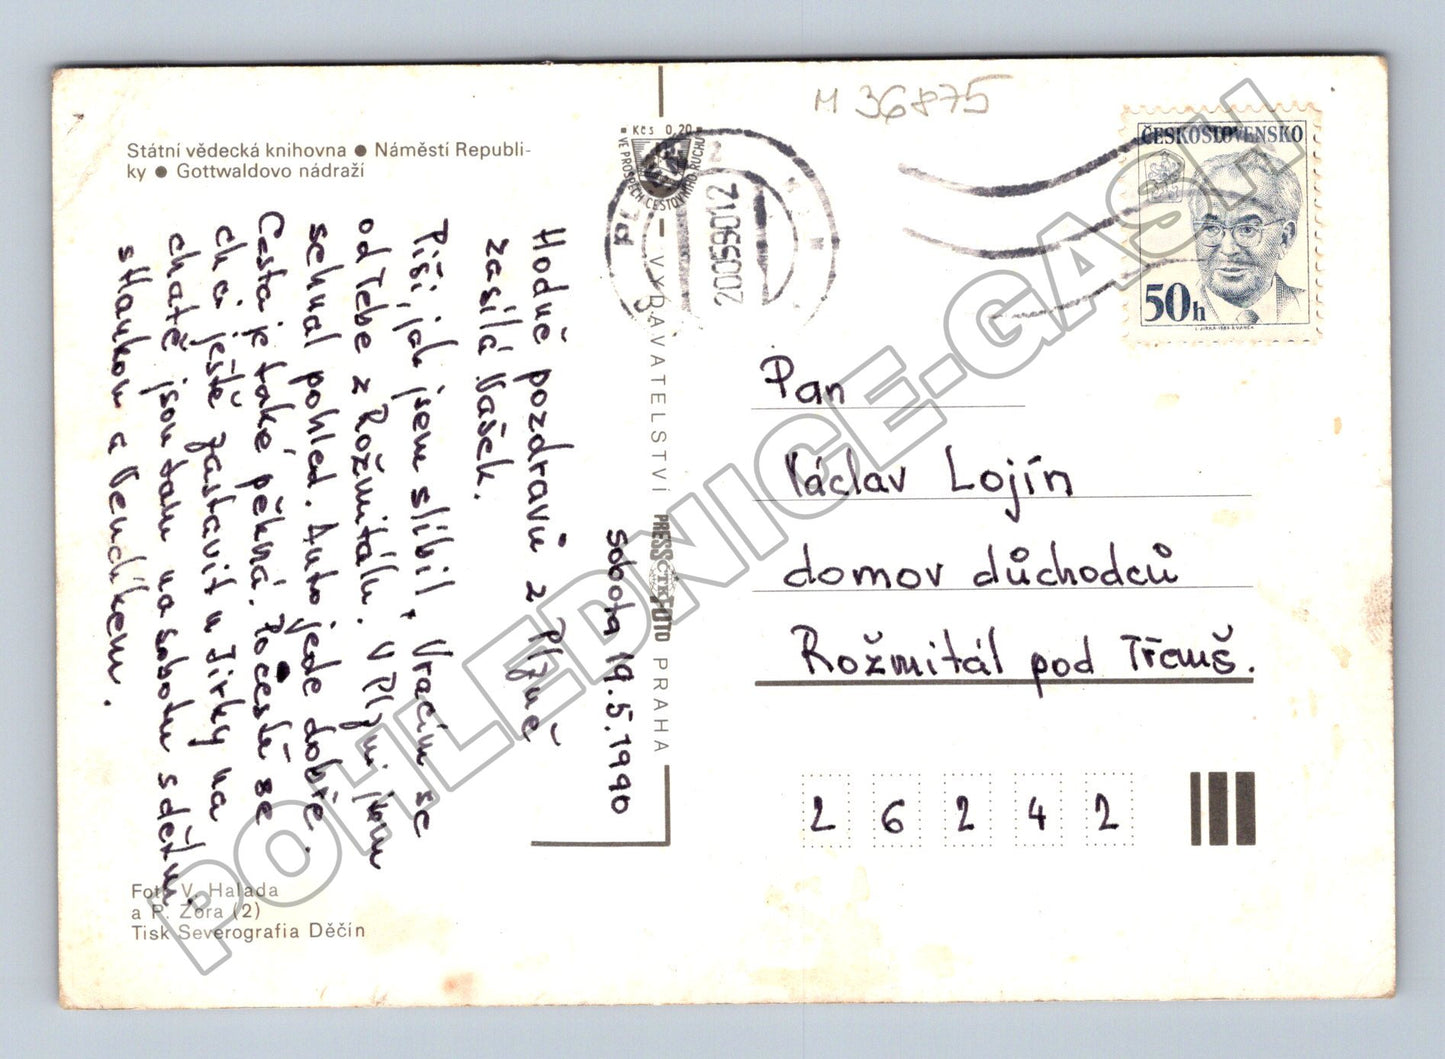 Státní vědecká knihovna ● Náměstí Republi-
ky ● Gottwaldovo nádraží
M 36875
Kčs 0,20
VE PROSPĚCH CESTOVNÍHO RUCHU
ČESKOSLOVENSKO
50h
PL
3
20.05.90.12
sobota 19.5.1990
Hodně pozdravů z Plzně
zasílá Vašek.
Píši, jak jsem slíbil. Vracím se
od Tebe z Rožmitálu. V Plzni jsem
sehnal pohled. Auto jede dobře.
Cesta je také pěkná. Po cestě se
chci ještě zastavit u Jirky na
chatě jsou tam na sobotu s dětmi.
s Hankou a Vendíkem.
VYDAVATELSTVÍ PRESSFOTO PRAHA
ČTK
Pan
Václav Lojín
domov důchodců
Rožmitál pod Třemš.
26242
Foto V. Halada
a P. Zora (2)
Tisk Severografia Děčín
POHLEDNICE-GASH